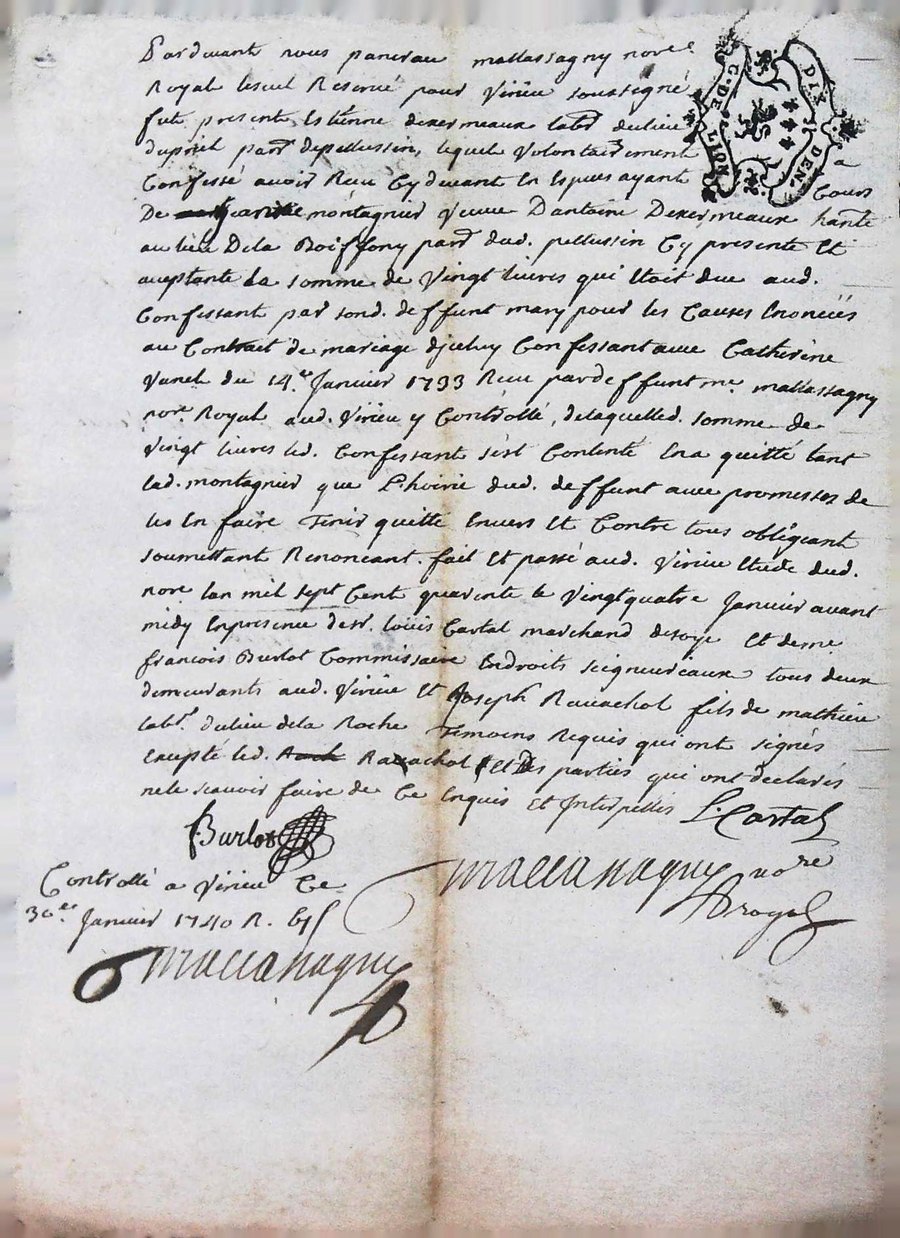 Pardevant nous pancrace mattassagny nore
Royal seul Reservé pour Virieu soussegné
fut present Estienne dexermeaux labr dulieu
dupriel parr depellussin, lequel Volontairement
Confessé avoir Receu Cydevant En Espces ayant
G. DE LION
DIX DEN.
a Cours
De montagnier Veuve Dantoine Dexermeaux hante
au lieu Dela Boissony parr dud. pellussin Cy presente Et
aceptante La somme de Vingt livres qui Etoit due aud.
Confessant par sond. deffunt mary pour les Causes Enoncées
au Contrait de mariage diceluy Confessant avec Catherine
Vanel du 14.e Janvier 1733 Receu par deffunt me. mattassagny
nore Royal aud. Virieu y Controllé, delaquelled. somme de
Vingt livres led. Confessant s'est Contenté En a quitté tant
lad. montagnier que L'hoirie dud. deffunt avec promesses de
les En faire Tenir quitte Envers Et Contre tous obligeant
soumettant Renoncant. fait Et passé aud. Virieu Etude dud.
nore Lan mil sept Cent quarente le Vingtquatre Janvier avant
midy Enpresence desr. Louis Cartal marchand desoye Et deme
francois Burlot Commissaire Endroits seigneuriaux tous deux
demeurants aud. Virieu Et Joseph Ravachol fils de mathieu
labr. dulieu dela Roche Temoins Requis qui ont signés
Excepté led. Ravachol Et Les parties qui ont declarés
nele scavoir faire de Ce Enquis Et Interpellés L. Cartal
Burlot
mattassagny nore
royal
Controllé a Virieu Ce
30e. Janvier 1740 R.
mattassagny